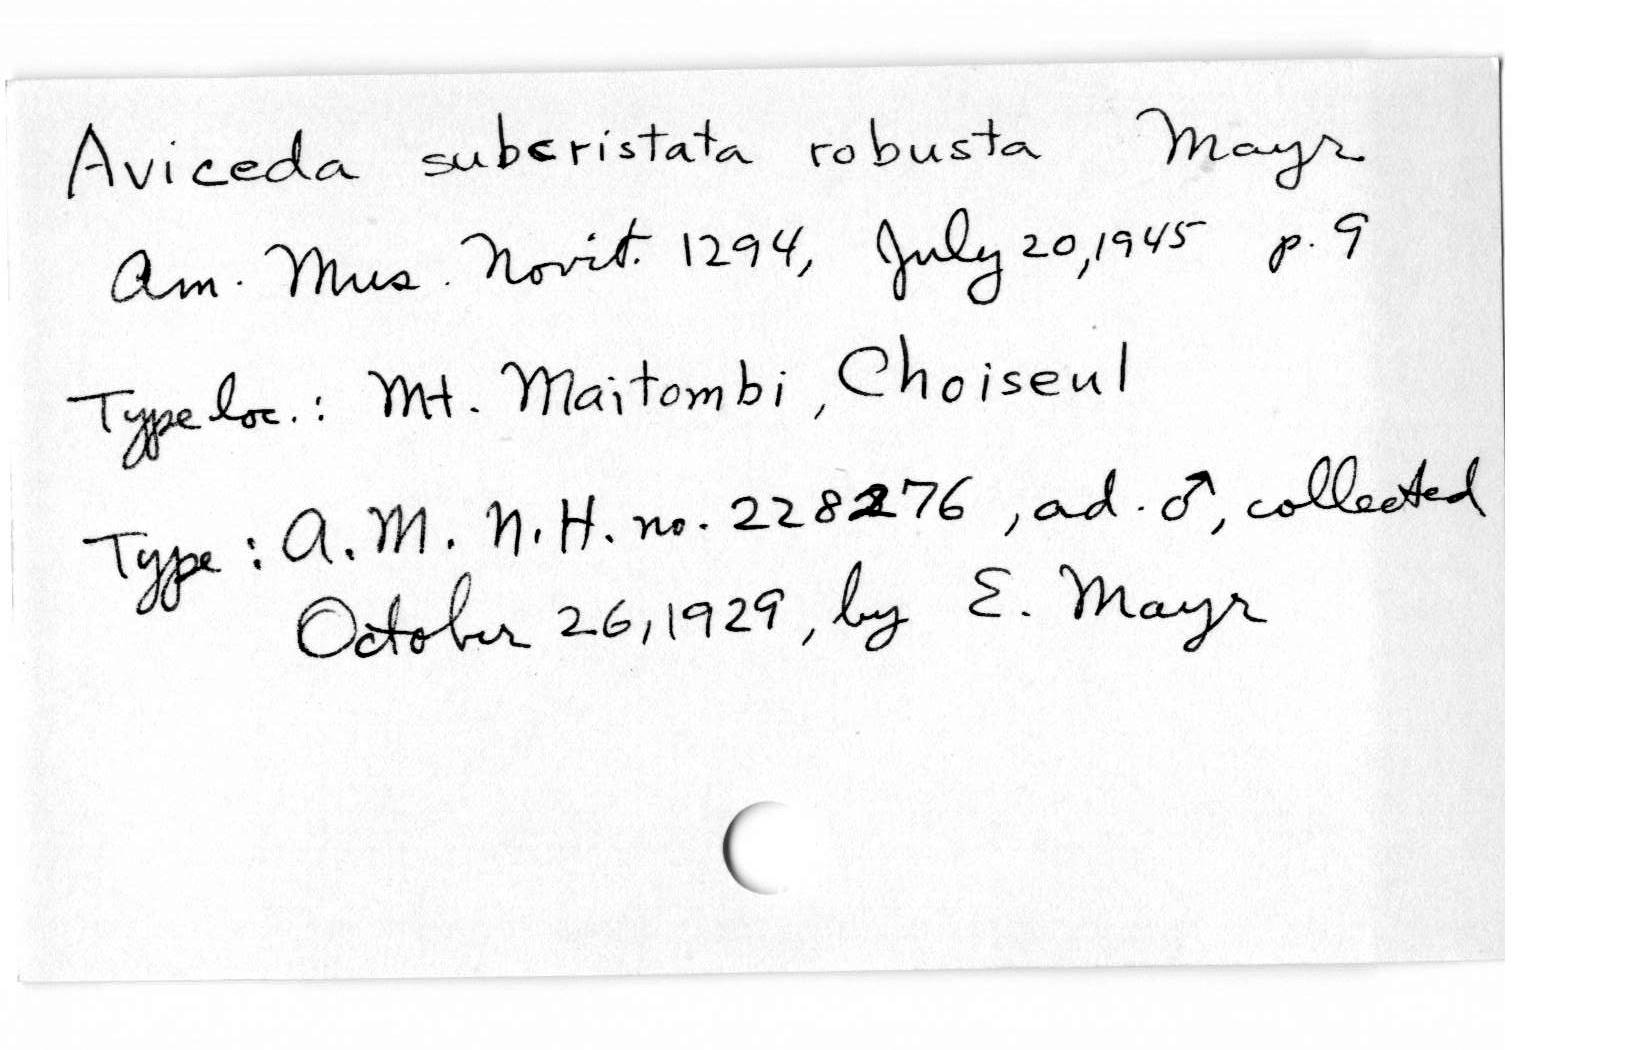 Aviceda subcristata robusta Mayr
Am. Mus. Novit. 1294, July 20, 1945 p. 9
Type loc.: Mt. Maitombi, Choiseul
Type: A.M.N.H. no. 228276, ad. ♂, collected
October 26, 1929, by E. Mayr